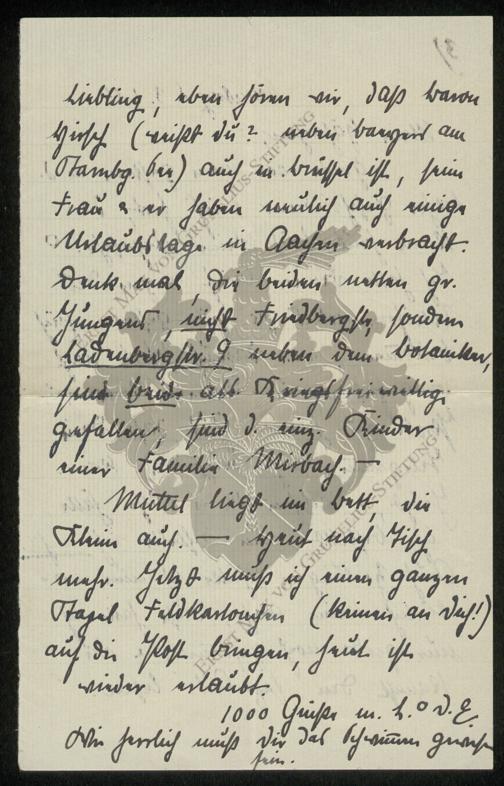 Liebling, eben hören wir, daß Baron
Hirsch (weißt du? neben Bayers am
Starnbg. See) auch in Brüssel ist, seine
Frau & er haben neulich auch einige
Urlaubstage in Aachen verbracht.
Denk mal, die beiden netten gr.
Jungens, nicht Friedbergstr, sondern
Ladenbergstr. 9 neben dem Botaniker,
sind beide als Kriegsfreiwillige
gefallen, sind d. einz. Kinder
einer Familie Mirbach. —
Muttel liegt im Bett, die
Kleine auch. — Heut nach Tisch
mehr. Jetzt muß ich einen ganzen
Stapel Feldkartons (keinen an Dich!)
auf die Post bringen, heut ist
wieder erlaubt.
1000 Grüße m. L. v. D. E.
Wie herrlich muß Dir das Schwimmen gewesen
sein.
ERNST MAX VON GRUNELIUS-STIFTUNG
ERNST MAX VON GRUNELIUS-STIFTUNG